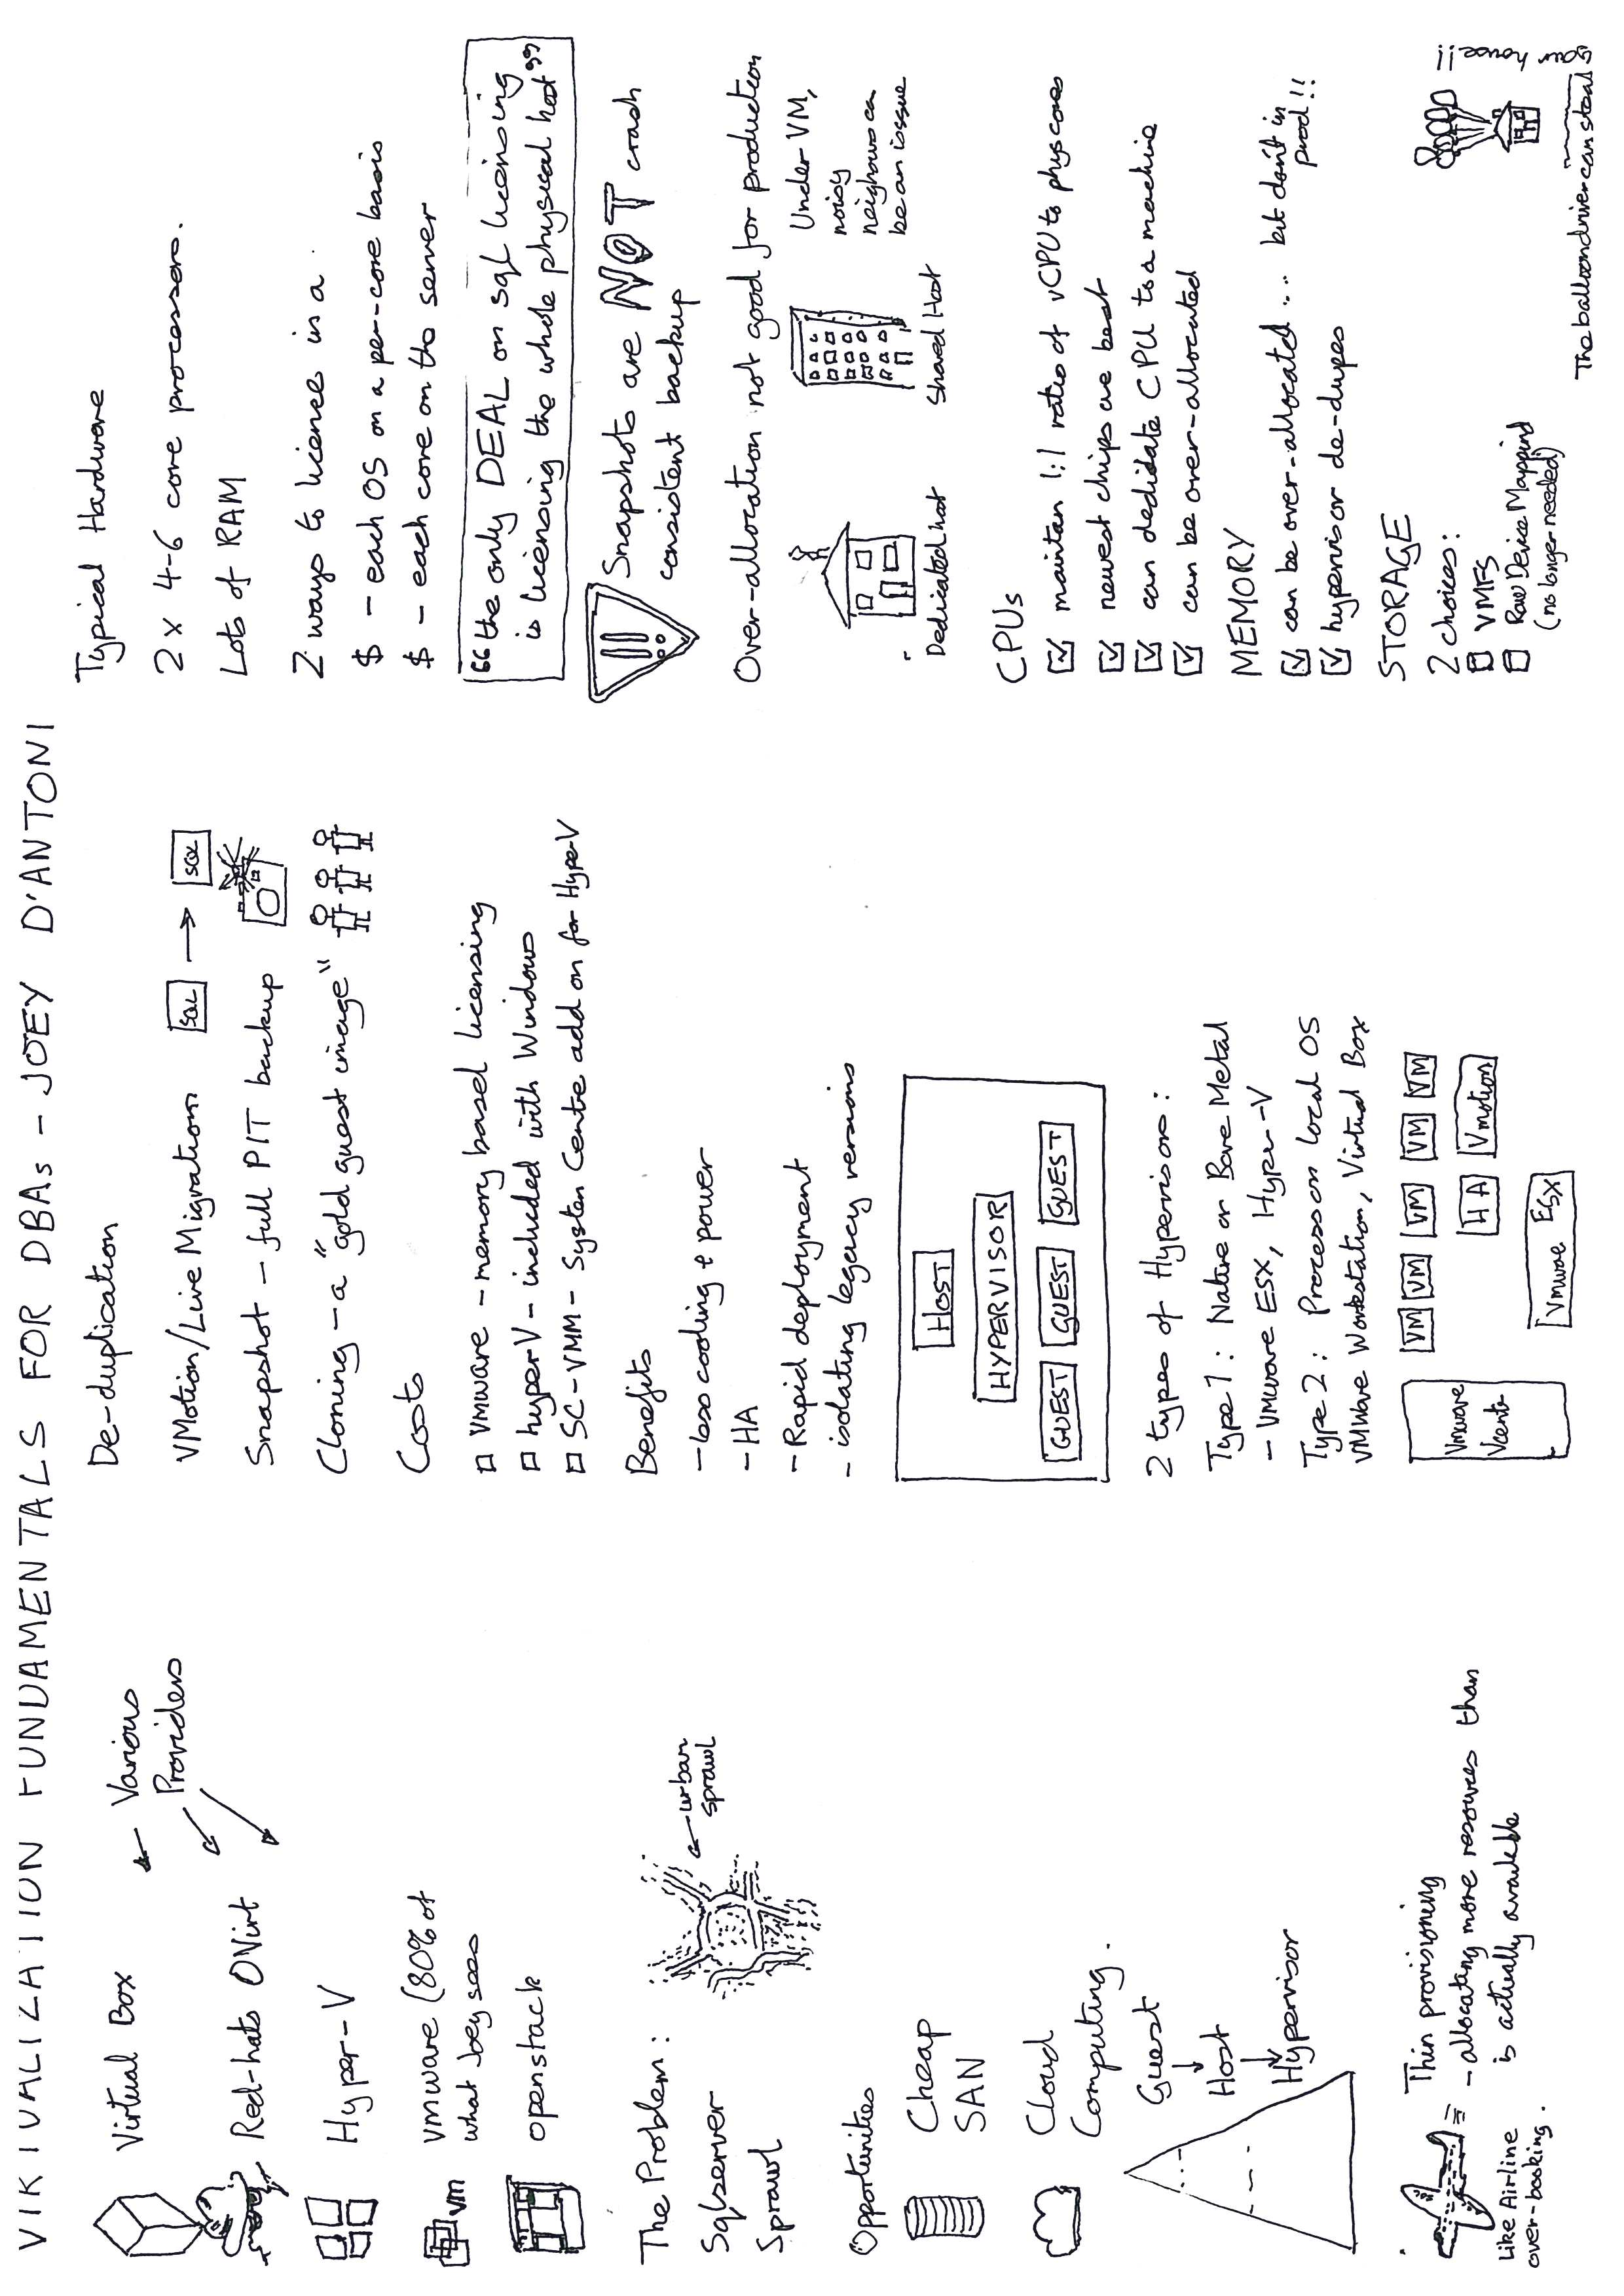 VIRTUALIZATION FUNDAMENTALS FOR DBAs - JOEY D'ANTONI
Virtual Box
← Various
Providers
Red-hats OVirt
Hyper-V
vm
vmware (80% of
what Joey sees
openstack
The Problem:
Sqlserver
Sprawl
←urban
sprawl
Opportunities
Cheap
SAN
Cloud
Computing.
Guest
Host
Hypervisor
Thin provisioning
-allocating more resources than
is actually available
Like Airline
over-booking.
De-duplication
VMotion/Live Migration
SQL → SQL
Snapshot - full PIT backup
Cloning - a "gold guest image"
Costs
VMware - memory based licensing
hyperV - included with Windows
SC-VMM - System Centre add on for Hyper-V
Benefits
- less cooling + power
- HA
- Rapid deployment
- isolating legacy versions
HOST
HYPERVISOR
GUEST GUEST GUEST
2 types of Hypervisors:
Type 1: Native or Bare Metal
- VMware ESX, Hyper-V
Type 2: Process on local OS
VMWare Workstation, Virtual Box
Vmware
Vcentr
VM VM VM VM VM
HA Vmotion
Vmware ESX
Typical Hardware
2 x 4-6 core processors.
Lots of RAM
2 ways to licence in a .
$ - each OS on a per-core basis
$ - each core on the server
"the only DEAL on sql licensing
is licensing the whole physical host"
!! Snapshots are NOT crash
consistent backup
Over-allocation not good for production
Dedicated host
Shared Host
Under VM,
noisy
neighours can
be an issue
CPUs
maintan 1:1 ratio of vCPU to phys cores
newest chips are best
can dedidate CPU to a machine
can be over-allocated
MEMORY
can be over-allocated... but don't in
prod!!
hypervisor de-dupes
STORAGE
2 choices:
VMFS
Raw Device Mapping
(no longer needed)
The balloon driver can steal
your house!!